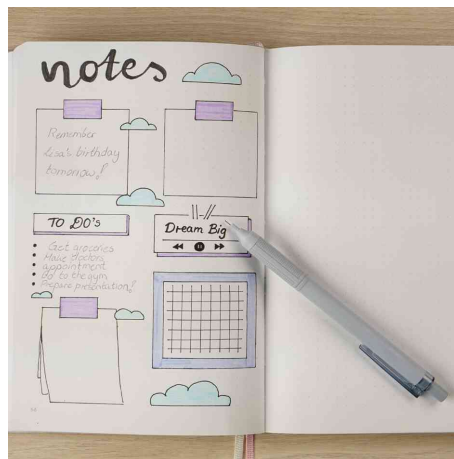 notes
Remember
Lisa's birthday
tomorrow!
TO DO's
Dream Big
Get groceries
Make doctors
appointment
Go to the gym
Prepare presentation!